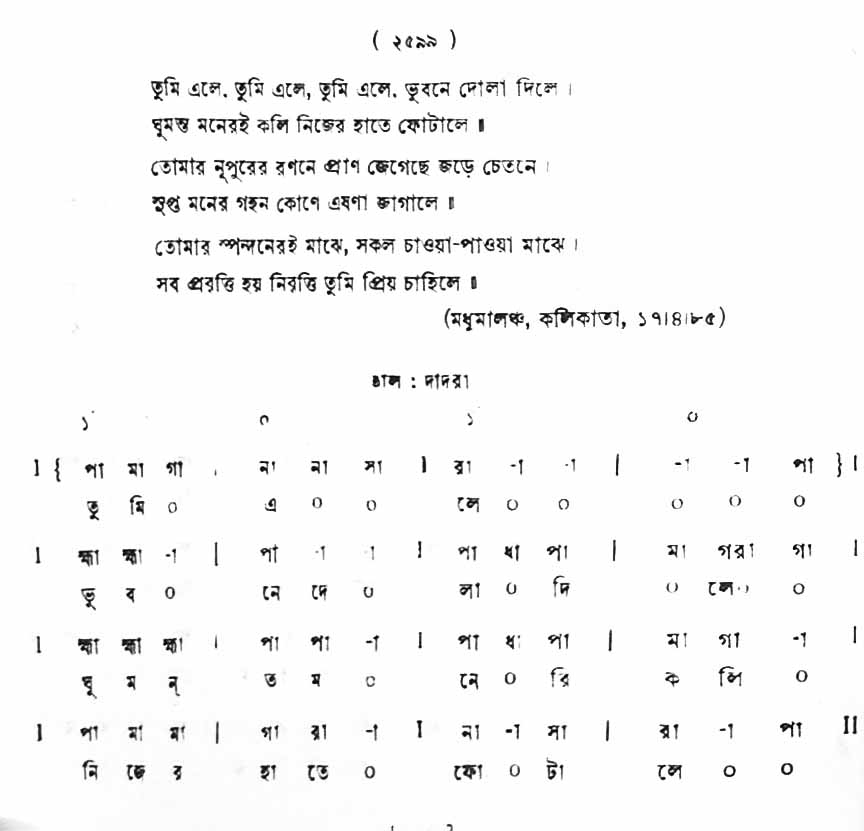 ( ২৫৯৯ )
তুমি এলে, তুমি এলে, তুমি এলে, ভুবনে দোলা দিলে ।
ঘুমন্ত মনেরই কলি নিজের হাতে ফোটালে ॥
তোমার নূপুরের রণনে প্রাণ জেগেছে জড়ে চেতনে ।
সুপ্ত মনের গহন কোণে এষণা জাগালে ॥
তোমার স্পন্দনেরই মাঝে, সকল চাওয়া-পাওয়া মাঝে ।
সব প্রবৃত্তি হয় নিবৃত্তি তুমি প্রিয় চাহিলে ॥
(মধুমালঞ্চ, কলিকাতা, ১৭।৪।৮৫)
তাল : দাদরা
১ ০ ১ ০
I { পা মা গা । না না সা I রা -া -া | -া -া পা } I
তু মি ০ এ ০ ০ লে ০ ০ ০ ০ ০
I হ্মা হ্মা -া | পা -া -া I পা ধা পা | মা গরা গা I
ভু ব ০ নে দে ০ লা ০ দি ০ লে০ ০
I হ্মা হ্মা হ্মা । পা পা -া I পা ধা পা | মা গা -া I
ঘু ম ন্ ত ম ০ নে ০ রি ক লি ০
I পা মা মা | গা রা -া I না -া সা | রা -া পা II
নি জে র হা তে ০ ফো ০ টা লে ০ ০